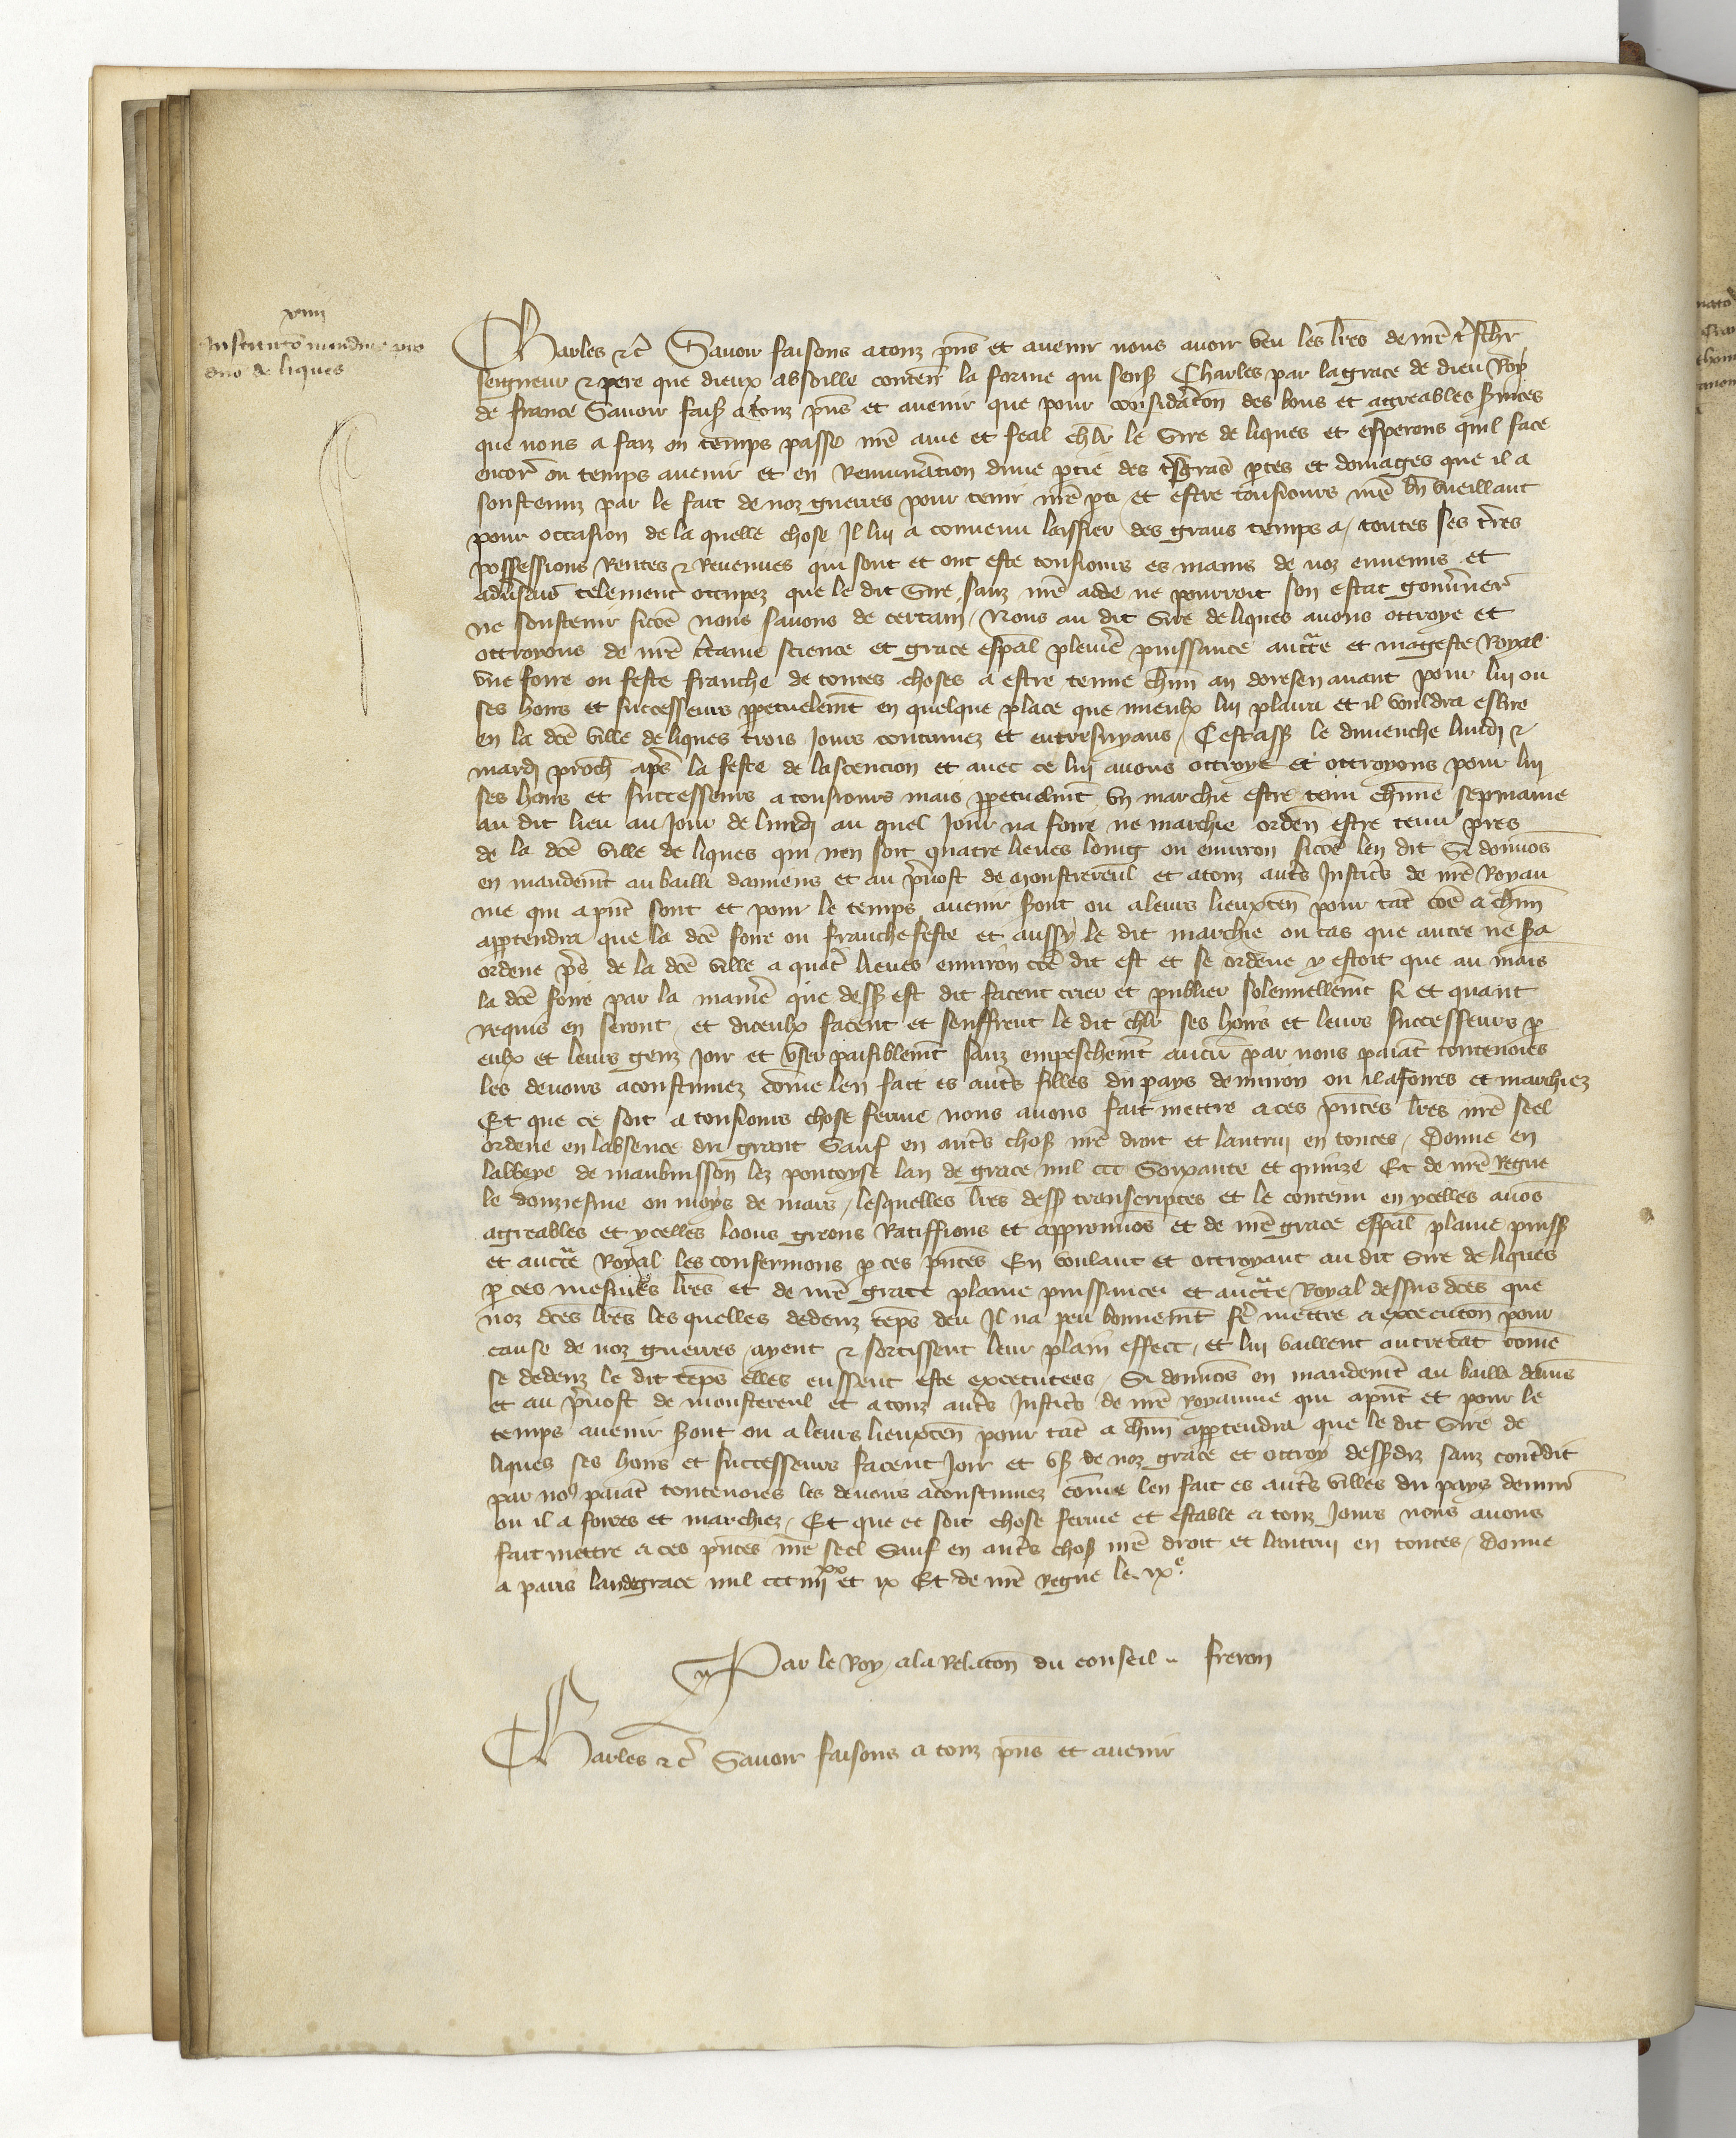 xiiii
Institucio nundinarum pro
dno de liques
Charles &c Savoir faisons a touz pñs et avenir nous avoir veu les lres de nre tr chr
seigneur & pere que dieux absoille conten la forme qui sens Charles par la grace de dieu Roy
de france Savoir fais a touz pñs et avenir que pour consideracon des bons et agreables services
que nous a faiz ou temps passe nre ame et feal chlr le Sire de liques et esperons quil face
encor ou temps avenir et en Remuneration dune ptie des tsgrans ptes et domages que il a
soustenuz par le fait de noz guerres pour tenir nre pti et estre tousiours nre bn vueillant
pour occasion de la quelle chose Il lui a convenu laissier des grans temps a / toutes ses tres
possessions Rentes & Revenues qui sont et ont este tousiours es mains de noz ennemis et
advsaires telement occupez que le dit Sire sanz nre aide ne pourroit son estat gouvner
ne soustenir sicoe nous savons de certain / Nous au dit Sire de liques avons ottroye et
ottroyons de nre ctaine science et grace espal pleniere puissance auctte et mageste Royal
une foire ou feste franche de toutes choses a estre tenue chun an doresen avant pour lui ou
ses hoirs et successeurs ppetuelemt en quelque place que mieulx lui plaira et il vouldra eslire
en la dce ville de liques trois Jours continuez et entresuyans / Cestass le dimenche lundj &
mardj proch aps la feste de lascencion et avec ce lui avons ottroye et ottroyons pour lui
ses hoirs et successeurs a tousiours mais ppetuelmt un marchie estre tenu chune sepmaine
au dit lieu au Jour de lundj au quel Jour na foire ne marchie orden estre tenu pres
de la dce ville de liques qui nen soit quatre lieues loing ou environ sicoe len dit Si donnos
en mandemt au bailli damiens et au pvost de Monstrereul et a touz auts Justics de nre Royau
me qui a pnt sont et pour le temps avenir sont ou a leurs lieuxten pour tat coe a chun
apptendra que la dce foire ou franche feste et aussy le dit marchie ou cas que autre ne sa
ordene ps de la dce ville a quat lieues environ coe dit est et se ordene y estoit que au mais
la dce foire par la manie que dess est dit facent crier et publier solennellemt Si et quant
Requis en seront / et diceulx facent et seuffrent le dit chlr ses hoirs et leurs successeurs p
eulx et leurs genz Joir et user paisiblemt sanz empeschemt aucun par nous paiat toutevoies
les devoirs acoustumez come len fait es auts villes du pays denviron ou il a foires et marchiez
Et que ce soit a tousiours chose ferme nous avons fait mettre a ces pntes lres nre seel
ordene en labsence du grant Sauf en auts chos nre droit et lautrui en toutes / Donne en
labbeye de maubuisson lez pontoyse lan de grace mil ccc Soixante et quinze Et de nre Regne
le douziesme ou moys de mars / lesquelles lres dess transcriptes et le contenu en ycelles avos
agreables et ycelles loons greons Ratiffions et approuvos et de nre grace espal plaine puiss
et auctte Royal les confermons p ces pntes En voulant et ottroyant au dit Sire de liques
p ces mesmes lres et de nre grace plaine puissance et auctte Royal dessus dces que
noz dces lres les quelles dedenz teps deu Il na peu bonnemt fe mettre a execucon pour
cause de noz guerres ayent & sortissent leur plain effect / et lui vaillent autretat come
se dedenz le dit teps elles eussent este executees / Si donnos en mandemt au bailli damiens
et au pvost de monstereul et a touz auts Justics de nre Royaume qui apnt et pour le
temps avenir sont ou a leurs lieuxten pour tat a chun apptendra que le dit Sire de
liques ses hoirs et successeurs facent Joir et us de noz grace et ottroy dessdiz sanz contdit
par no paiat toutevoies les devoirs acoustumez come len fait es auts villes du pays denvir
ou il a foires et marchiez / Et que ce soit chose ferme et estable a touz Jours nous avons
fait mettre a ces pntes nre seel Sauf en auts chos nre droit et lautrui en toutes / Donne
a paris lan de grace mil ccc iiii xx et ix Et de nre Regne le ix e
Par le Roy a la Relacon du conseil freron
Charles &c Savoir faisons a touz pns et avenir